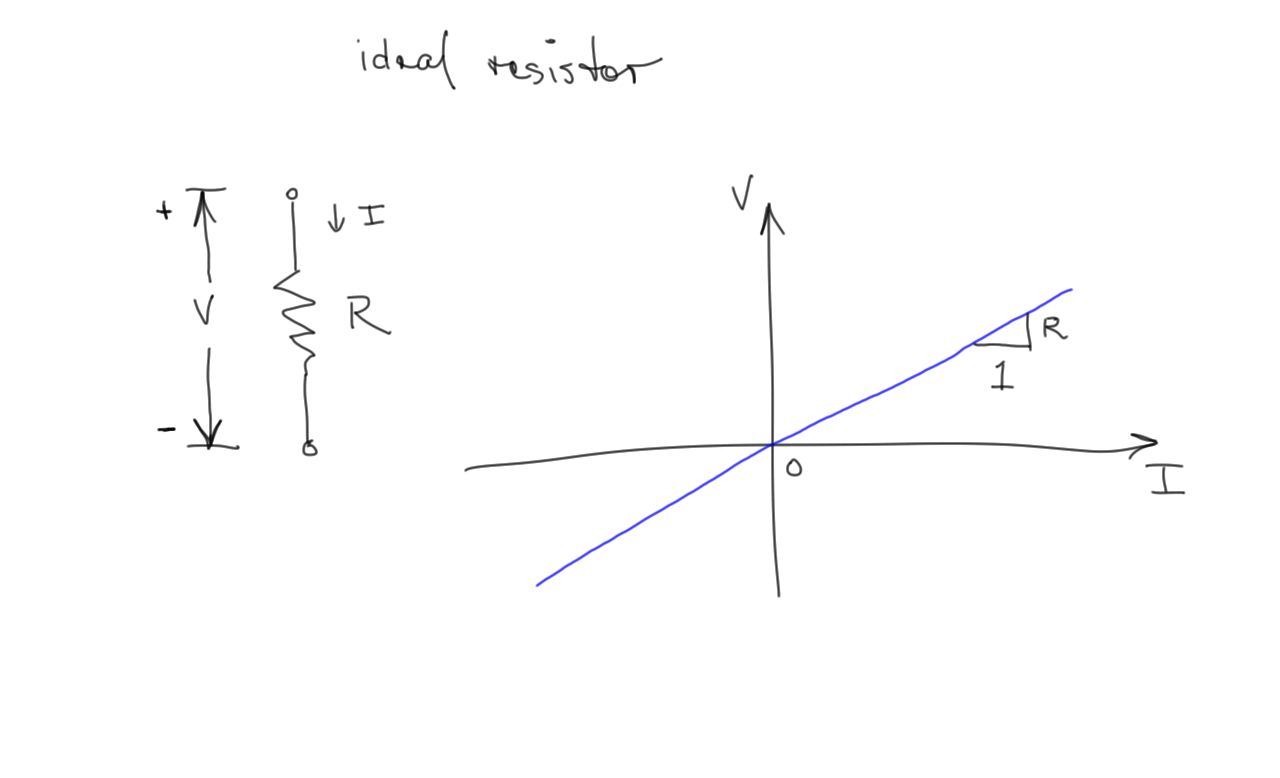 ideal resistor
+
V
-
↓ I
R
V
R
1
0
I